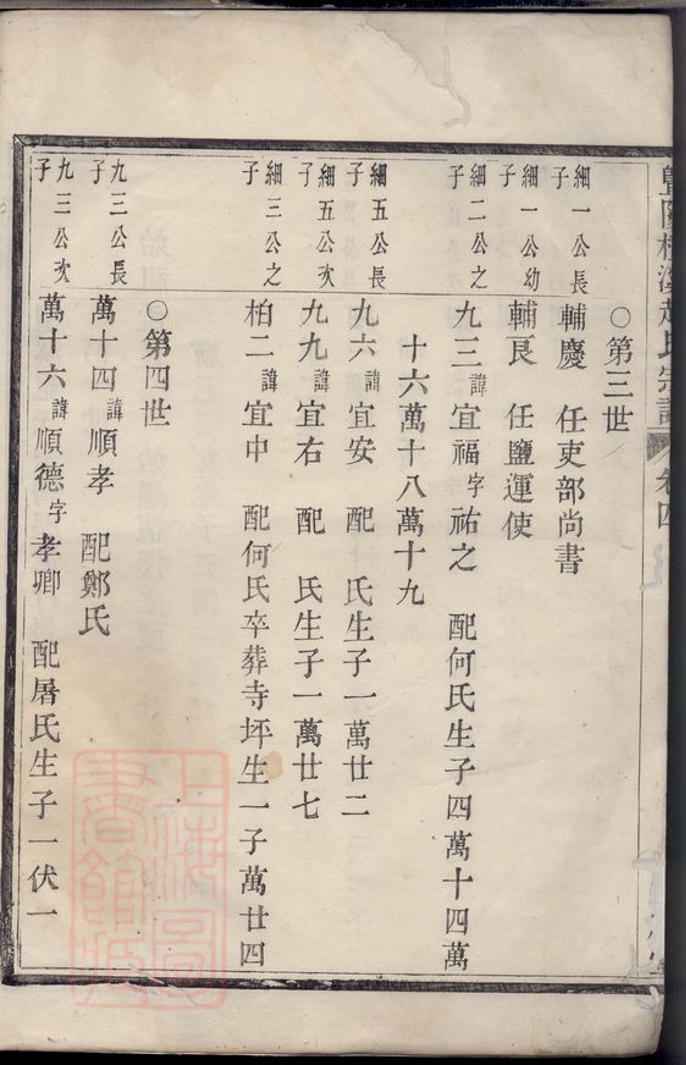 暨陽
趙氏宗譜
卷四
○第三世
細一公長子
輔慶 任吏部尚書
細一公幼子
輔良 任鹽運使
細二公之子
九三諱宜福字祐之 配何氏生子四萬十四萬
十六萬十八萬十九
細五公長子
九六諱宜安 配 氏生子一萬廿二
細五公次子
九九諱宜右 配 氏生子一萬廿七
細三公之子
柏二諱宜中 配何氏卒葬寺坪生一子萬廿四
○第四世
九三公長子
萬十四諱順孝 配鄭氏
九三公次子
萬十六諱順德字孝卿 配屠氏生子一伏一
上海圖書館藏